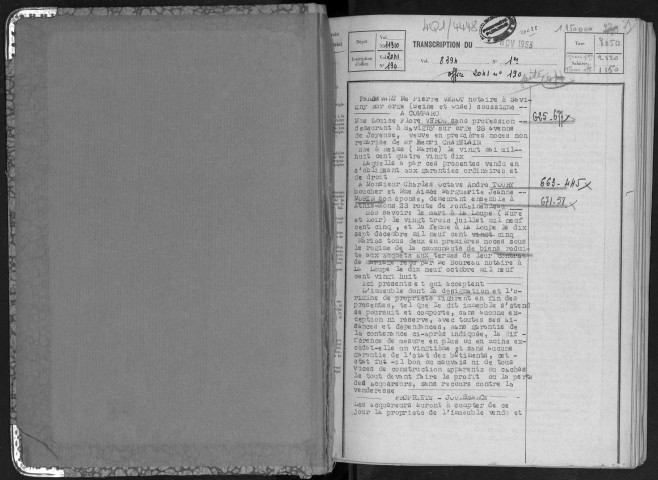 4Q1/4448
Dépôt Vol. 11300 N°
TRANSCRIPTION DU NOV 1953
Inscription d'office Vol. 20H1 N° 190
Vol. 8294 N° 1er
office 20H1 n° 190
Taxe
Salaires
PARDEVANT Me Pierre VENOT notaire à Savi
gny sur orge (Seine et Oise) soussigné
A COMPARU
Mme Louise Flore sans profession
demeurant à SAVIGNY sur orge 28 avenue
de Joyeuse, veuve en premières noces non
remariée de Mr Henri CHATELAIN
Née à Reims (Marne) le vingt mai mil-
huit cent quatre vingt dix
Laquelle a par ces présentes vendu en
s'obligeant aux garanties ordinaires et
de droit
A Monsieur Charles Octave André
boucher et Mme Aimée Marguerite Jeanne
MORIN son épouse, demeurant ensemble à
Athis-Mons 23 route de Fontainebleau
Nés savoir le mari à La Loupe (Eure
et Loir) le vingt trois juillet mil neuf
cent cinq, et la femme à La Loupe le dix
sept décembre mil neuf cent cinq
Mariés tous deux en premières noces sous
le régime de la communauté de biens rédui-
te aux acquêts aux termes de leur contrat
de mariage reçu par Me Boureau notaire à
La Loupe le dix neuf octobre mil neuf
cent vingt huit
Ici présents et qui acceptent
L'immeuble dont la désignation et l'o-
rigine de propriété figurent en fin des
présentes, tel que le dit immeuble s'étend
se poursuit et comporte, sans aucune ex-
ception ni réserve, avec toutes ses ai-
sances et dépendances, sans garantie de
la contenance ci-après indiquée, la dif-
férence de mesure en plus ou en moins ex-
cédat-elle un vingtième et sans aucune
garantie de l'état des bâtiments, cet
état fut -il bon ou mauvais ni de tous
vices de construction apparents ou cachés
le tout devant faire le profit ou la perte
des acquéreurs, sans recours contre la
venderesse
PROPRIETE - JOUISSANCE
Les acquéreurs auront à compter de ce
jour la propriété de l'immeuble vendu et
625-67
663-445
671-51